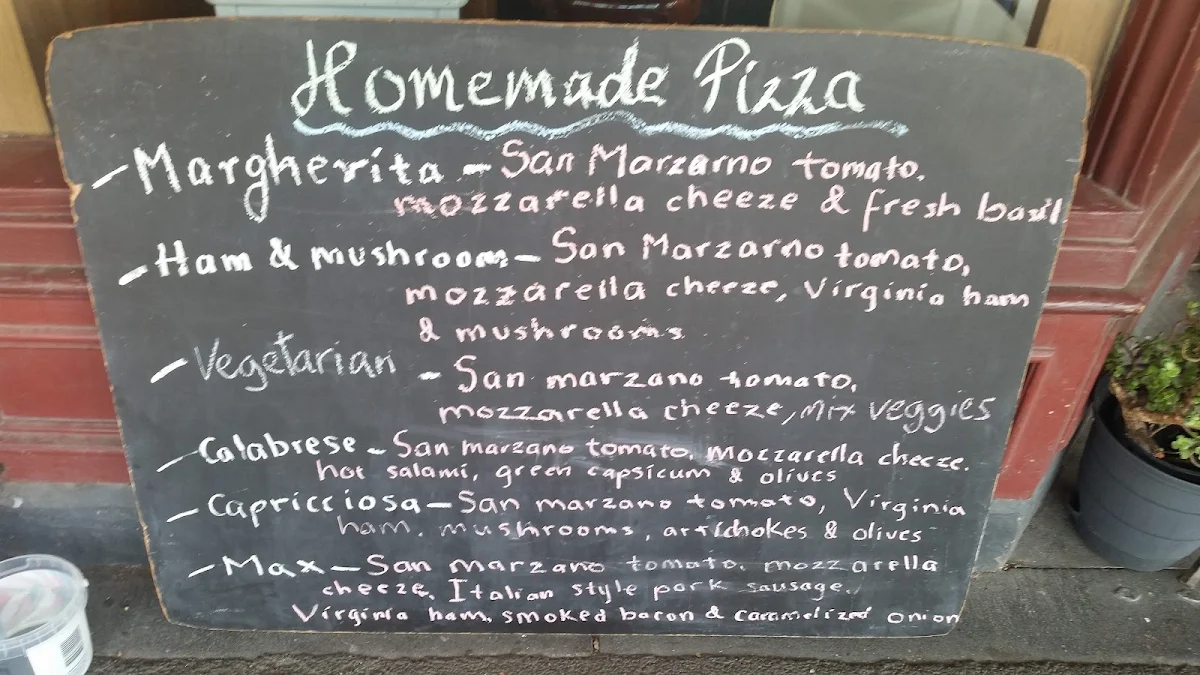 Homemade Pizza
- Margherita - San Marzarno tomato,
mozzarella cheeze & fresh basil
- Ham & mushroom - San Marzarno tomato,
mozzarella cheeze, Virginia ham
& mushrooms
- Vegetarian - San marzano tomato,
mozzarella cheeze, mix veggies
- Calabrese - San marzano tomato, mozzarella cheeze,
hot salami, green capsicum & olives
- Capricciosa - San marzano tomato, Virginia
ham, mushrooms, artichokes & olives
- Max - San marzano tomato, mozzarella
cheeze, Italian style pork sausage,
Virginia ham, smoked bacon & caramelized onion